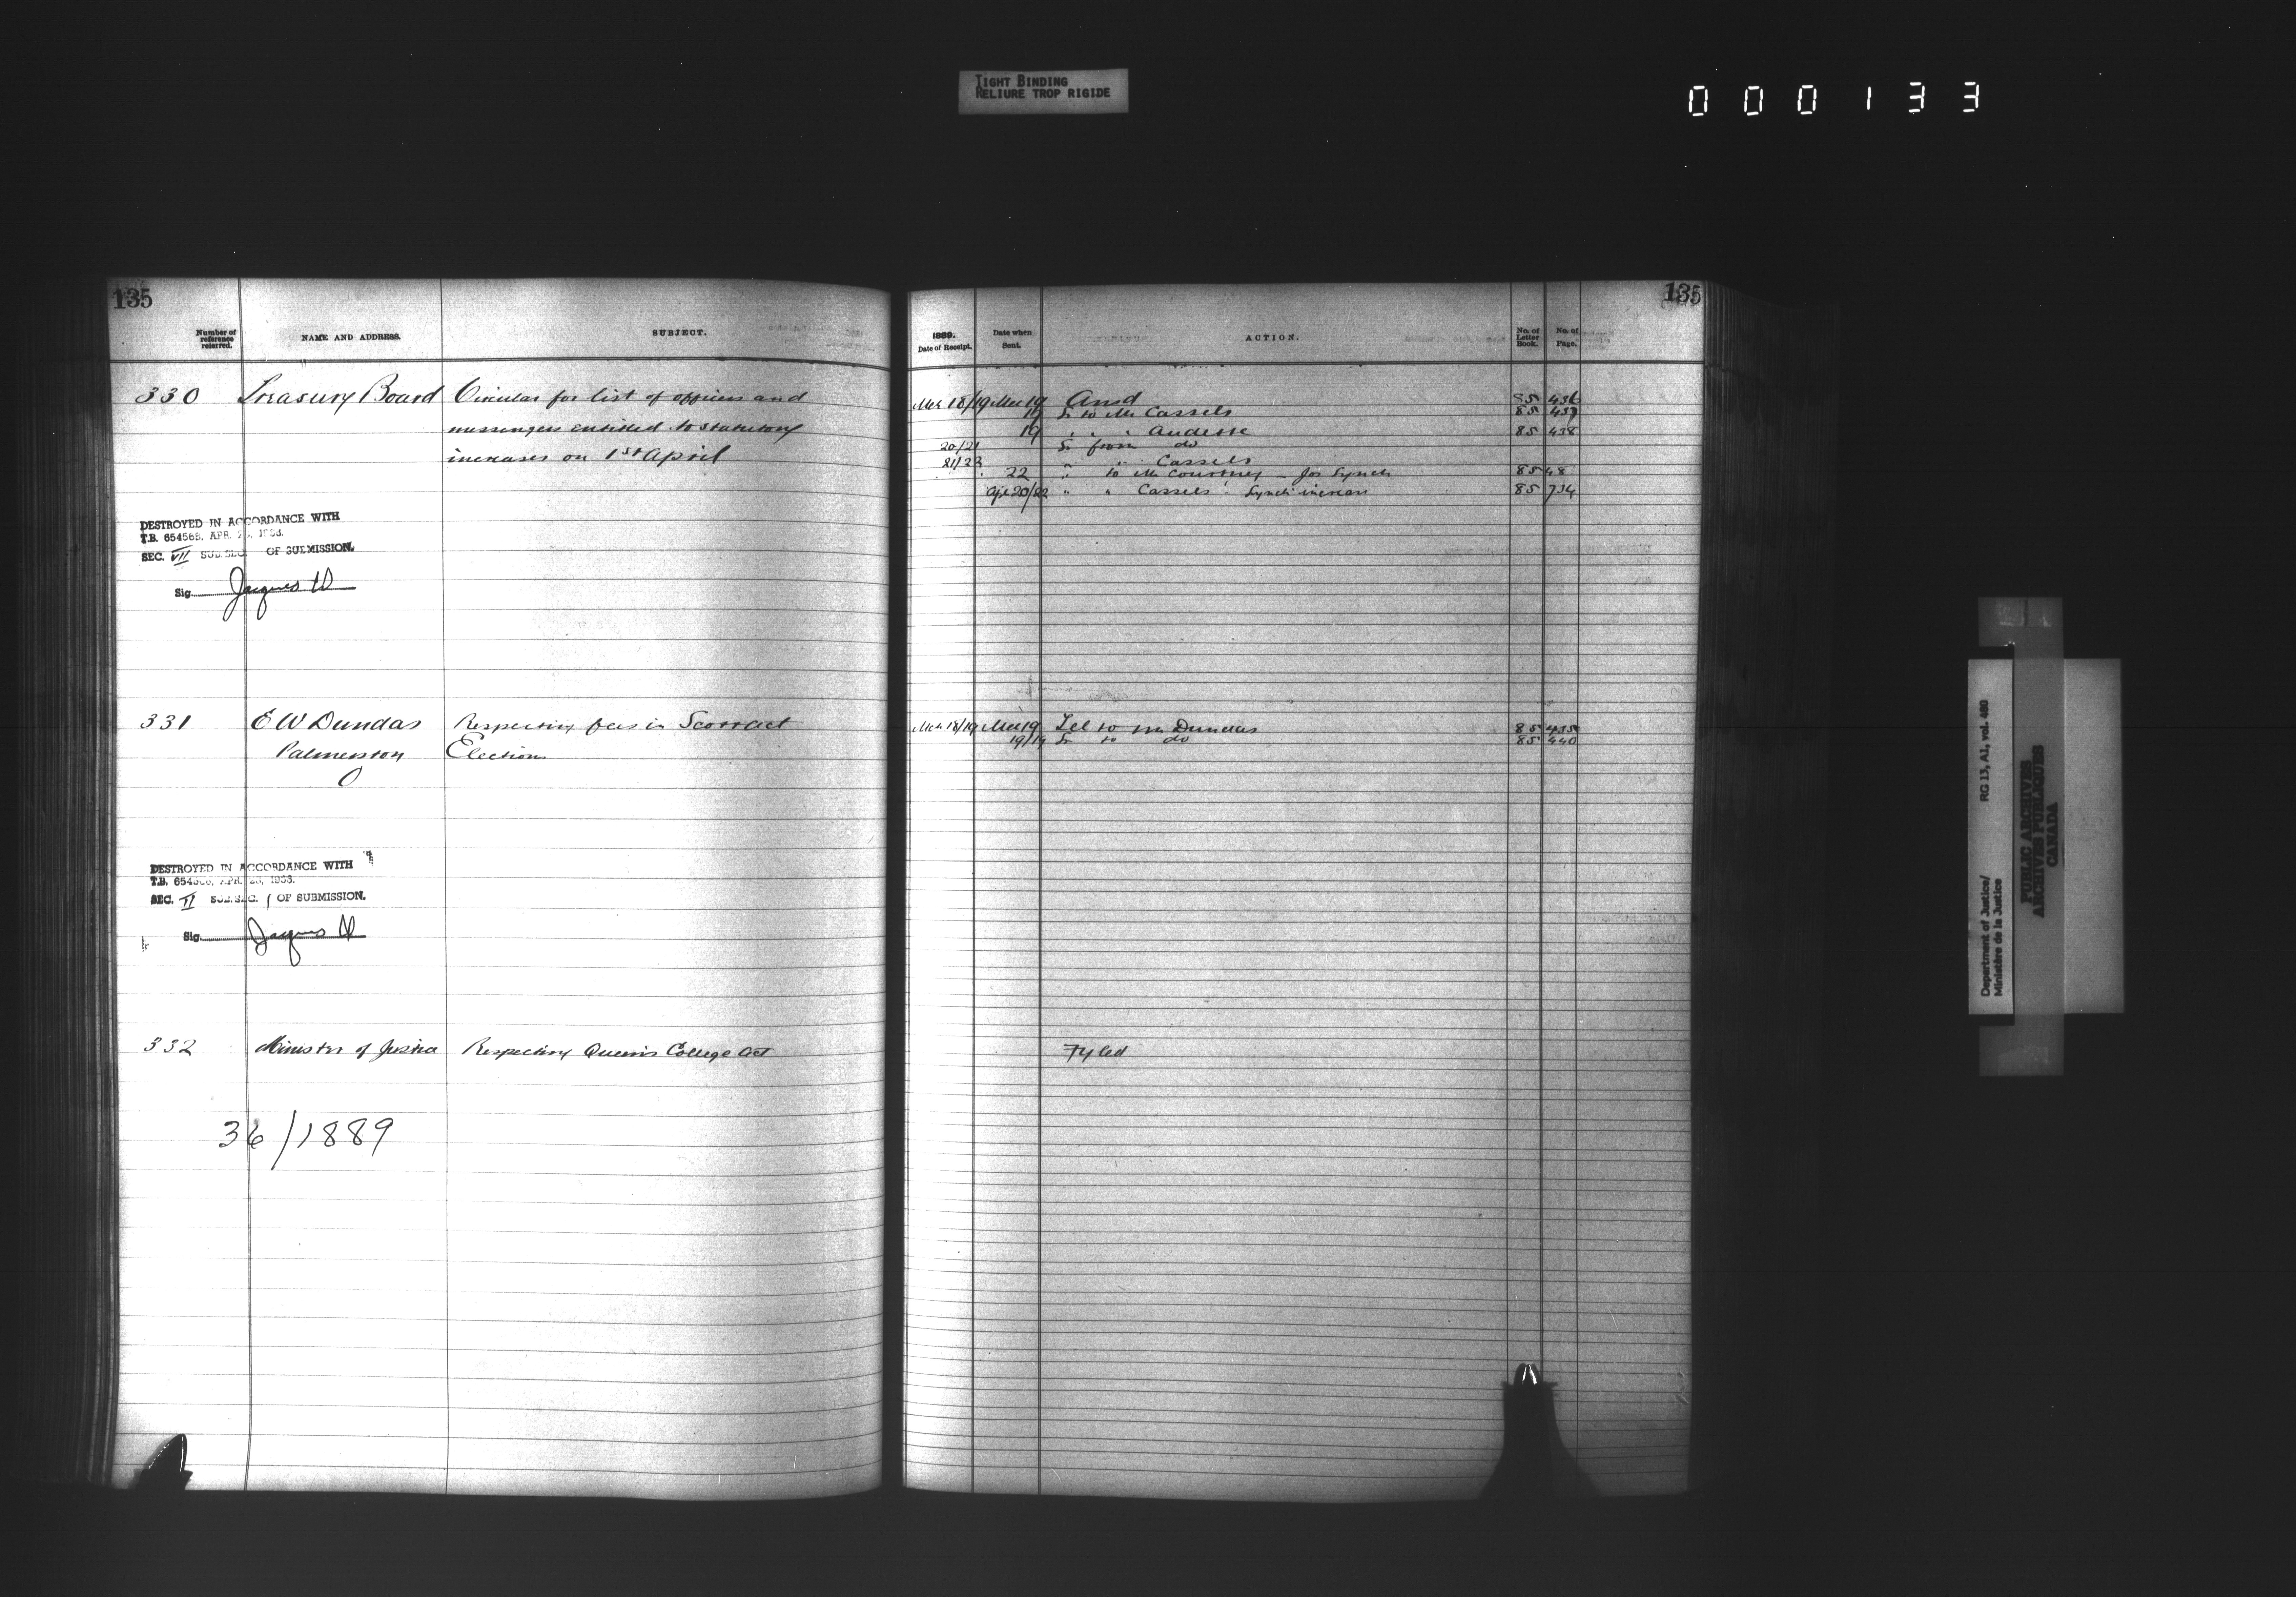 TIGHT BINDING
RELIURE TROP RIGIDE
000133
135
135
Number of reference referred.
NAME AND ADDRESS.
SUBJECT.
1889.
Date of Receipt.
Date when Sent.
ACTION.
No. of Letter Book.
No. of Page.
330 Treasury Board Circular for list of officers and
messengers entitled to statutory
increases on 1st April
Mch 18/19 Mch 19 Ansd 85 436
19 Lr to Mr Cassels 85 437
19 " " " Audette 85 438
20/21 Lr from do
21/22 " " Cassels
22 " to Mr Courtney - Jos Lynch 85 48
Apl 20/22 " " Cassels - Lynch increase 85 734
DESTROYED IN ACCORDANCE WITH
T.B. 654568, APR. 1953.
SEC. VII SUB.SEC. OF SUBMISSION.
Sig. Jacques
331 E W Dundas Respecting fees in Scott act
Palmerston Elections
O
Mch 18/19 Mch 19 Tel to Mr Dundas 85 435
19/19 Lr to do 85 440
DESTROYED IN ACCORDANCE WITH
T.B. APR.
SEC. VI SUB.SEC. 1 OF SUBMISSION.
Sig. Jacques
332 Minister of Justice Respecting Queen's College Act Fyled
36/1889
Department of Justice/ RG 13, A1, vol. 480
Ministère de la Justice
PUBLIC ARCHIVES
ARCHIVES PUBLIQUES
CANADA